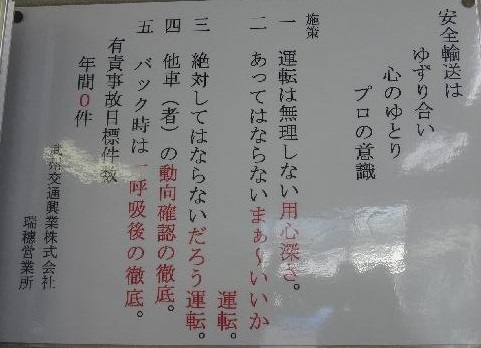 安全輸送は
ゆずり合い
心のゆとり
プロの意識
施策
一 運転は無理しない用心深さ。
二 あってはならないまぁ～いいか
運転。
三 絶対してはならないだろう運転。
四 他車（者）の動向確認の徹底。
五 バック時は一呼吸後の徹底。
有責事故目標件数
年間０件
武州交通興業株式会社
瑞穂営業所